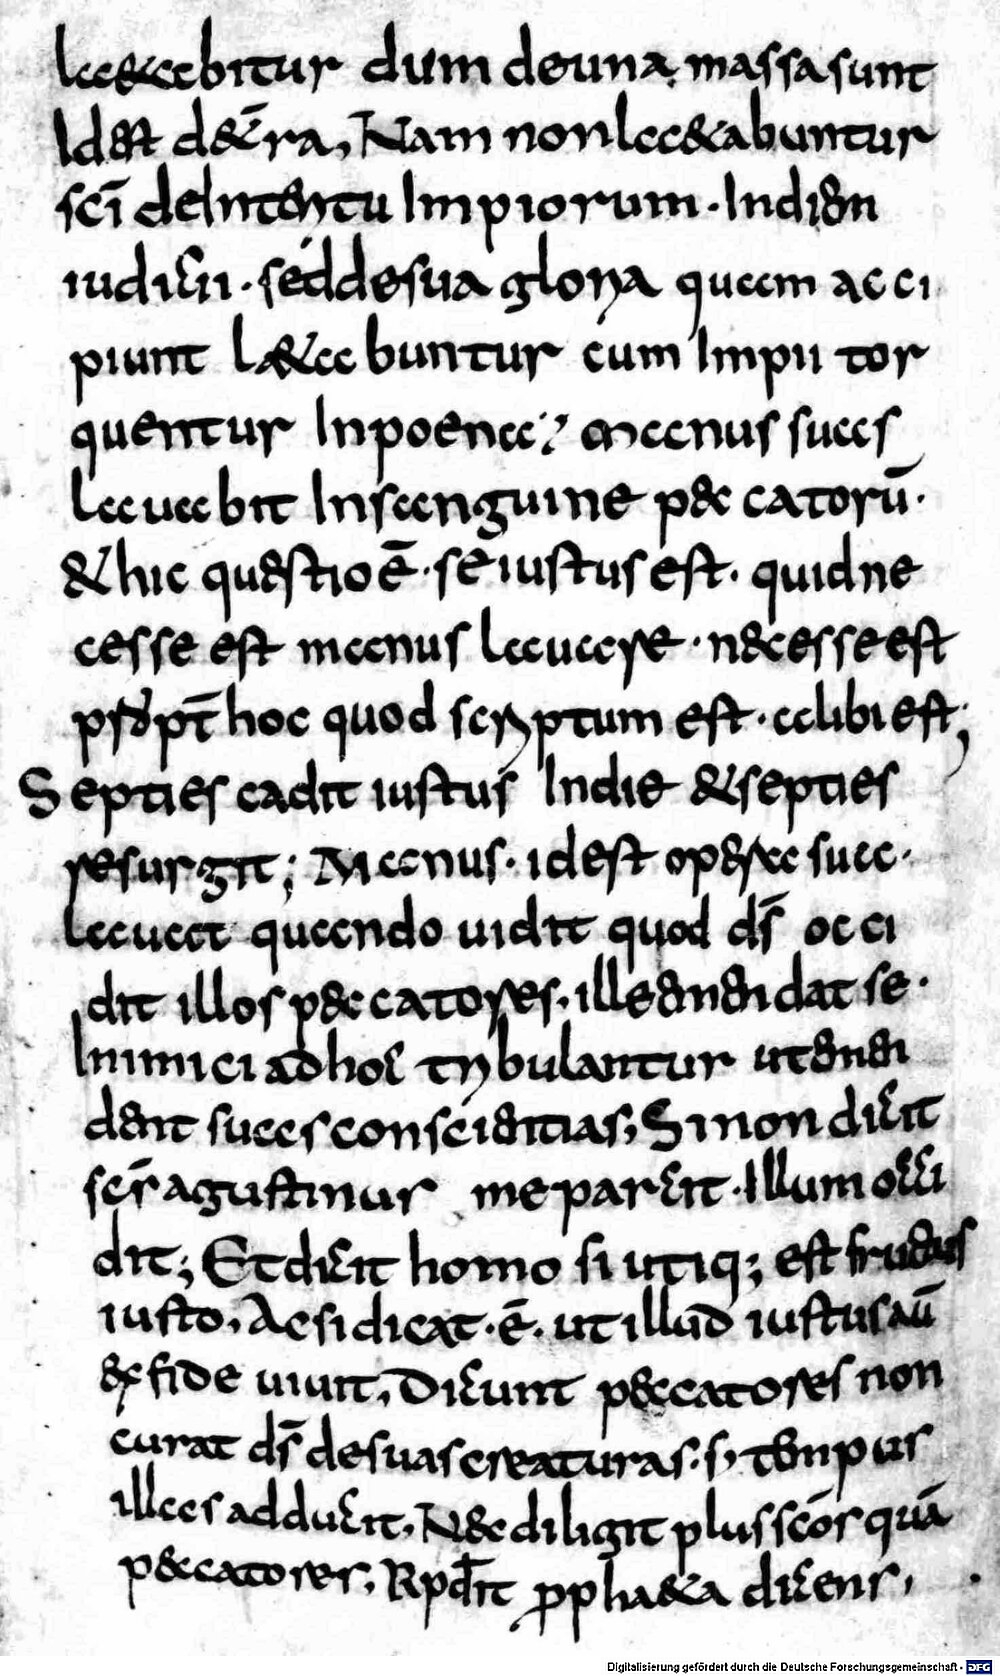 lae&abitur dum de una massa sunt
Id est de t̄ra, Nam non lae&abuntur
sc̄i de Intentu Impiorum · In dien
iudicii · sed de sua gloria quam acci
piunt l&abuntur cum Impii tor
quentur In poena; Manus suas
lauabit In sanguine p&catorū ·
& hic questio ē · se iustus est · quid ne
cesse est manus lauare · n&cesse est
propt̄ hoc quod scriptum est · alibi est;
Septies cadit iustus In die & septies
resurgit; Manus · id est opera sua ·
lauat quando uidit quod d̄s occi
dit illos p&catores, ille emendat se ·
Inimici ad hoc tribulantur ut emen
dent suas consciencias, Si non dicit
sc̄s agustinus me parcit · Illum occi
dit; Et dicit homo si utiq; est fructus
iusto, Ac si dicat · ē · ut illud iustus aū
ex fide uiuit, Dicunt peccatores non
curat d̄s de suas creaturas · s; tempus
illas adducit, Nec diligit plus sc̄os quā
p&catores, Rpdit propha&a dicens,
Digitalisierung gefördert durch die Deutsche Forschungsgemeinschaft - DFG